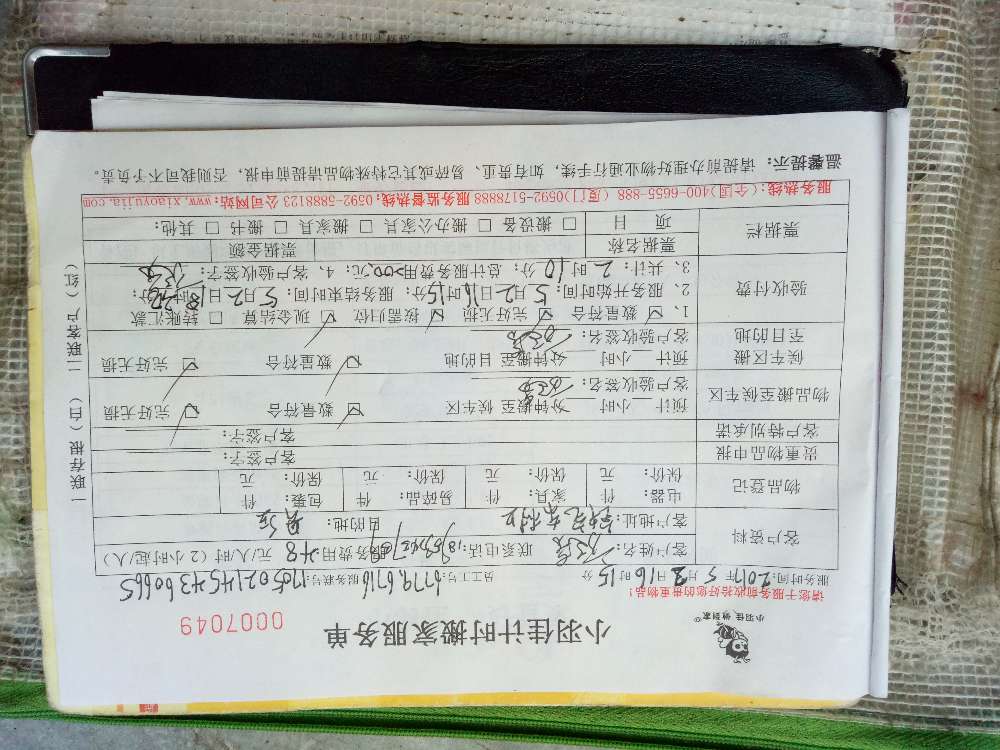 小羽佳计时搬家服务单
小羽佳、做到家
0007049
请您于服务前收拾好您的贵重物品！
服务时间：2017年5月2日16时15分 员工工号：6779、6716 服务账号：170502145436065
客户资料 客户姓名： 联系电话： 服务费用：48 元/人/时（2小时起/人）
客户地址： 目的地：
物品登记 电器： 件 家具： 件 易碎品： 件 包裹： 件
保价： 元 保价： 元 保价： 元 保价： 元
贵重物品申报 客户签字：
客户特别承诺 客户签字：
物品搬至候车区 预计 小时 分钟搬至候车区 ☑ 数量符合 ☑ 完好无损
客户验收签名：
候车区搬至目的地 预计 小时 分钟搬至目的地 ☑ 数量符合 ☑ 完好无损
客户验收签名：
验收付费 1、☑ 数量符合 ☑ 完好无损 ☑ 按需归位 ☑ 现金结算 □ 转账汇款
2、服务开始时间：5月2日16时15分；服务结束时间：5月2日18时 分；
3、共计：2时10分；总计服务费用200元；4、客户验收签字：
票据栏 票据名称 票据金额
项目 □ 搬设备 □ 搬办公家具 □ 搬家具 □ 搬书 □ 其他：
服务热线：(全国)400-6655-888 (厦门)0592-5178888 服务监督热线：0592-5888123 公司网站：www.xiaoyujia.com
温馨提示：请提前办理好物业通行手续，如有贵重、易碎或其它特殊物品请提前申报，否则我司不予负责。
一联存根（白） 二联客户（红）